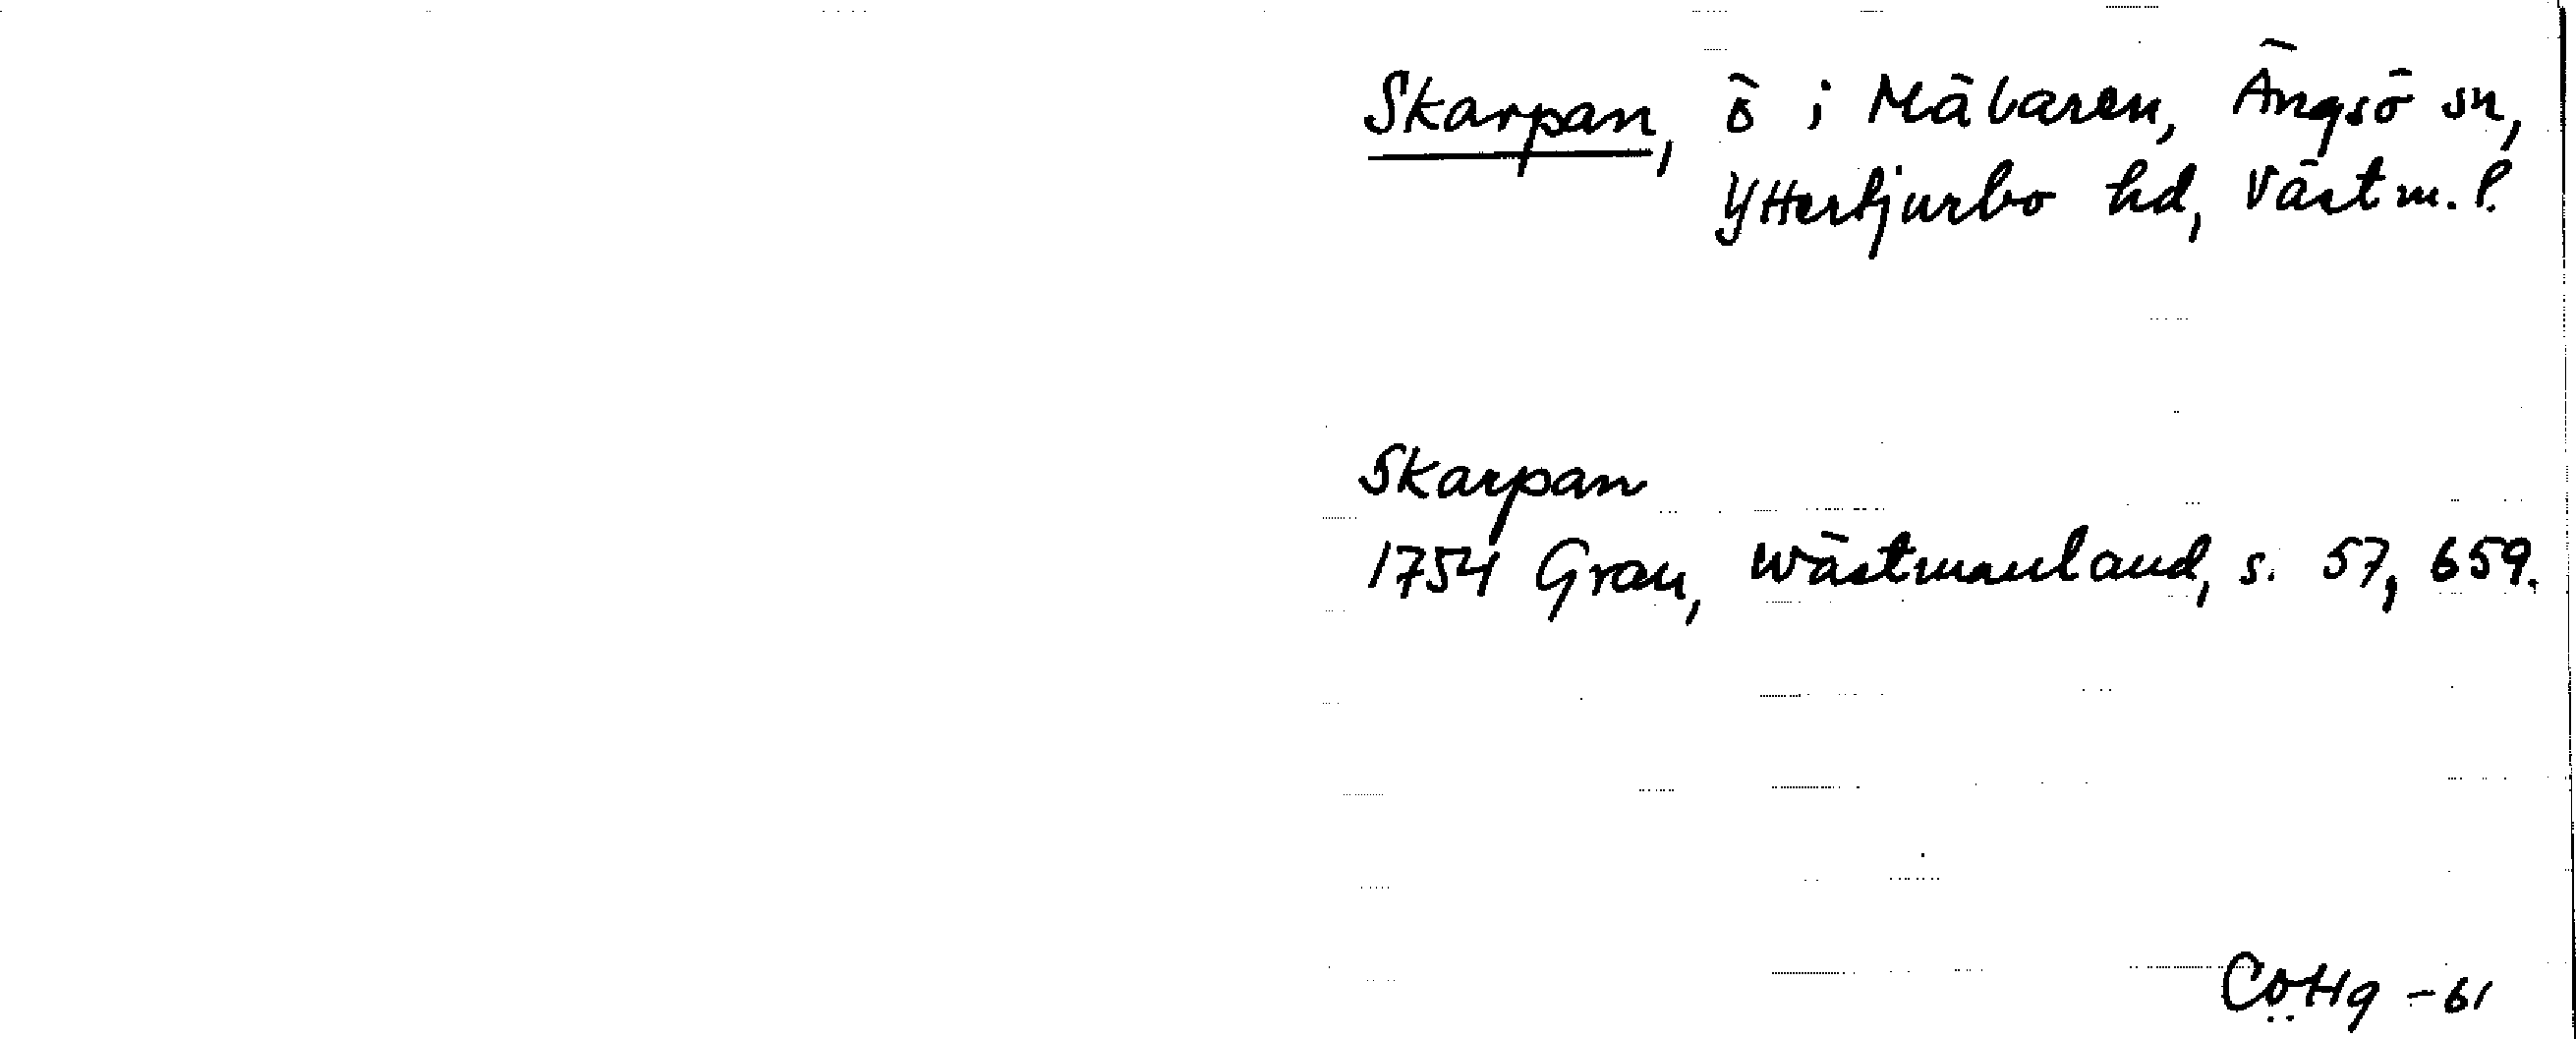 Skarpan, ö i Mälaren, Ängsö sn,
Yttertjurbo hd, Västm. l.
Skarpan
1754 Grau, Wästmanland, s. 57, 659.
CÖHg -61